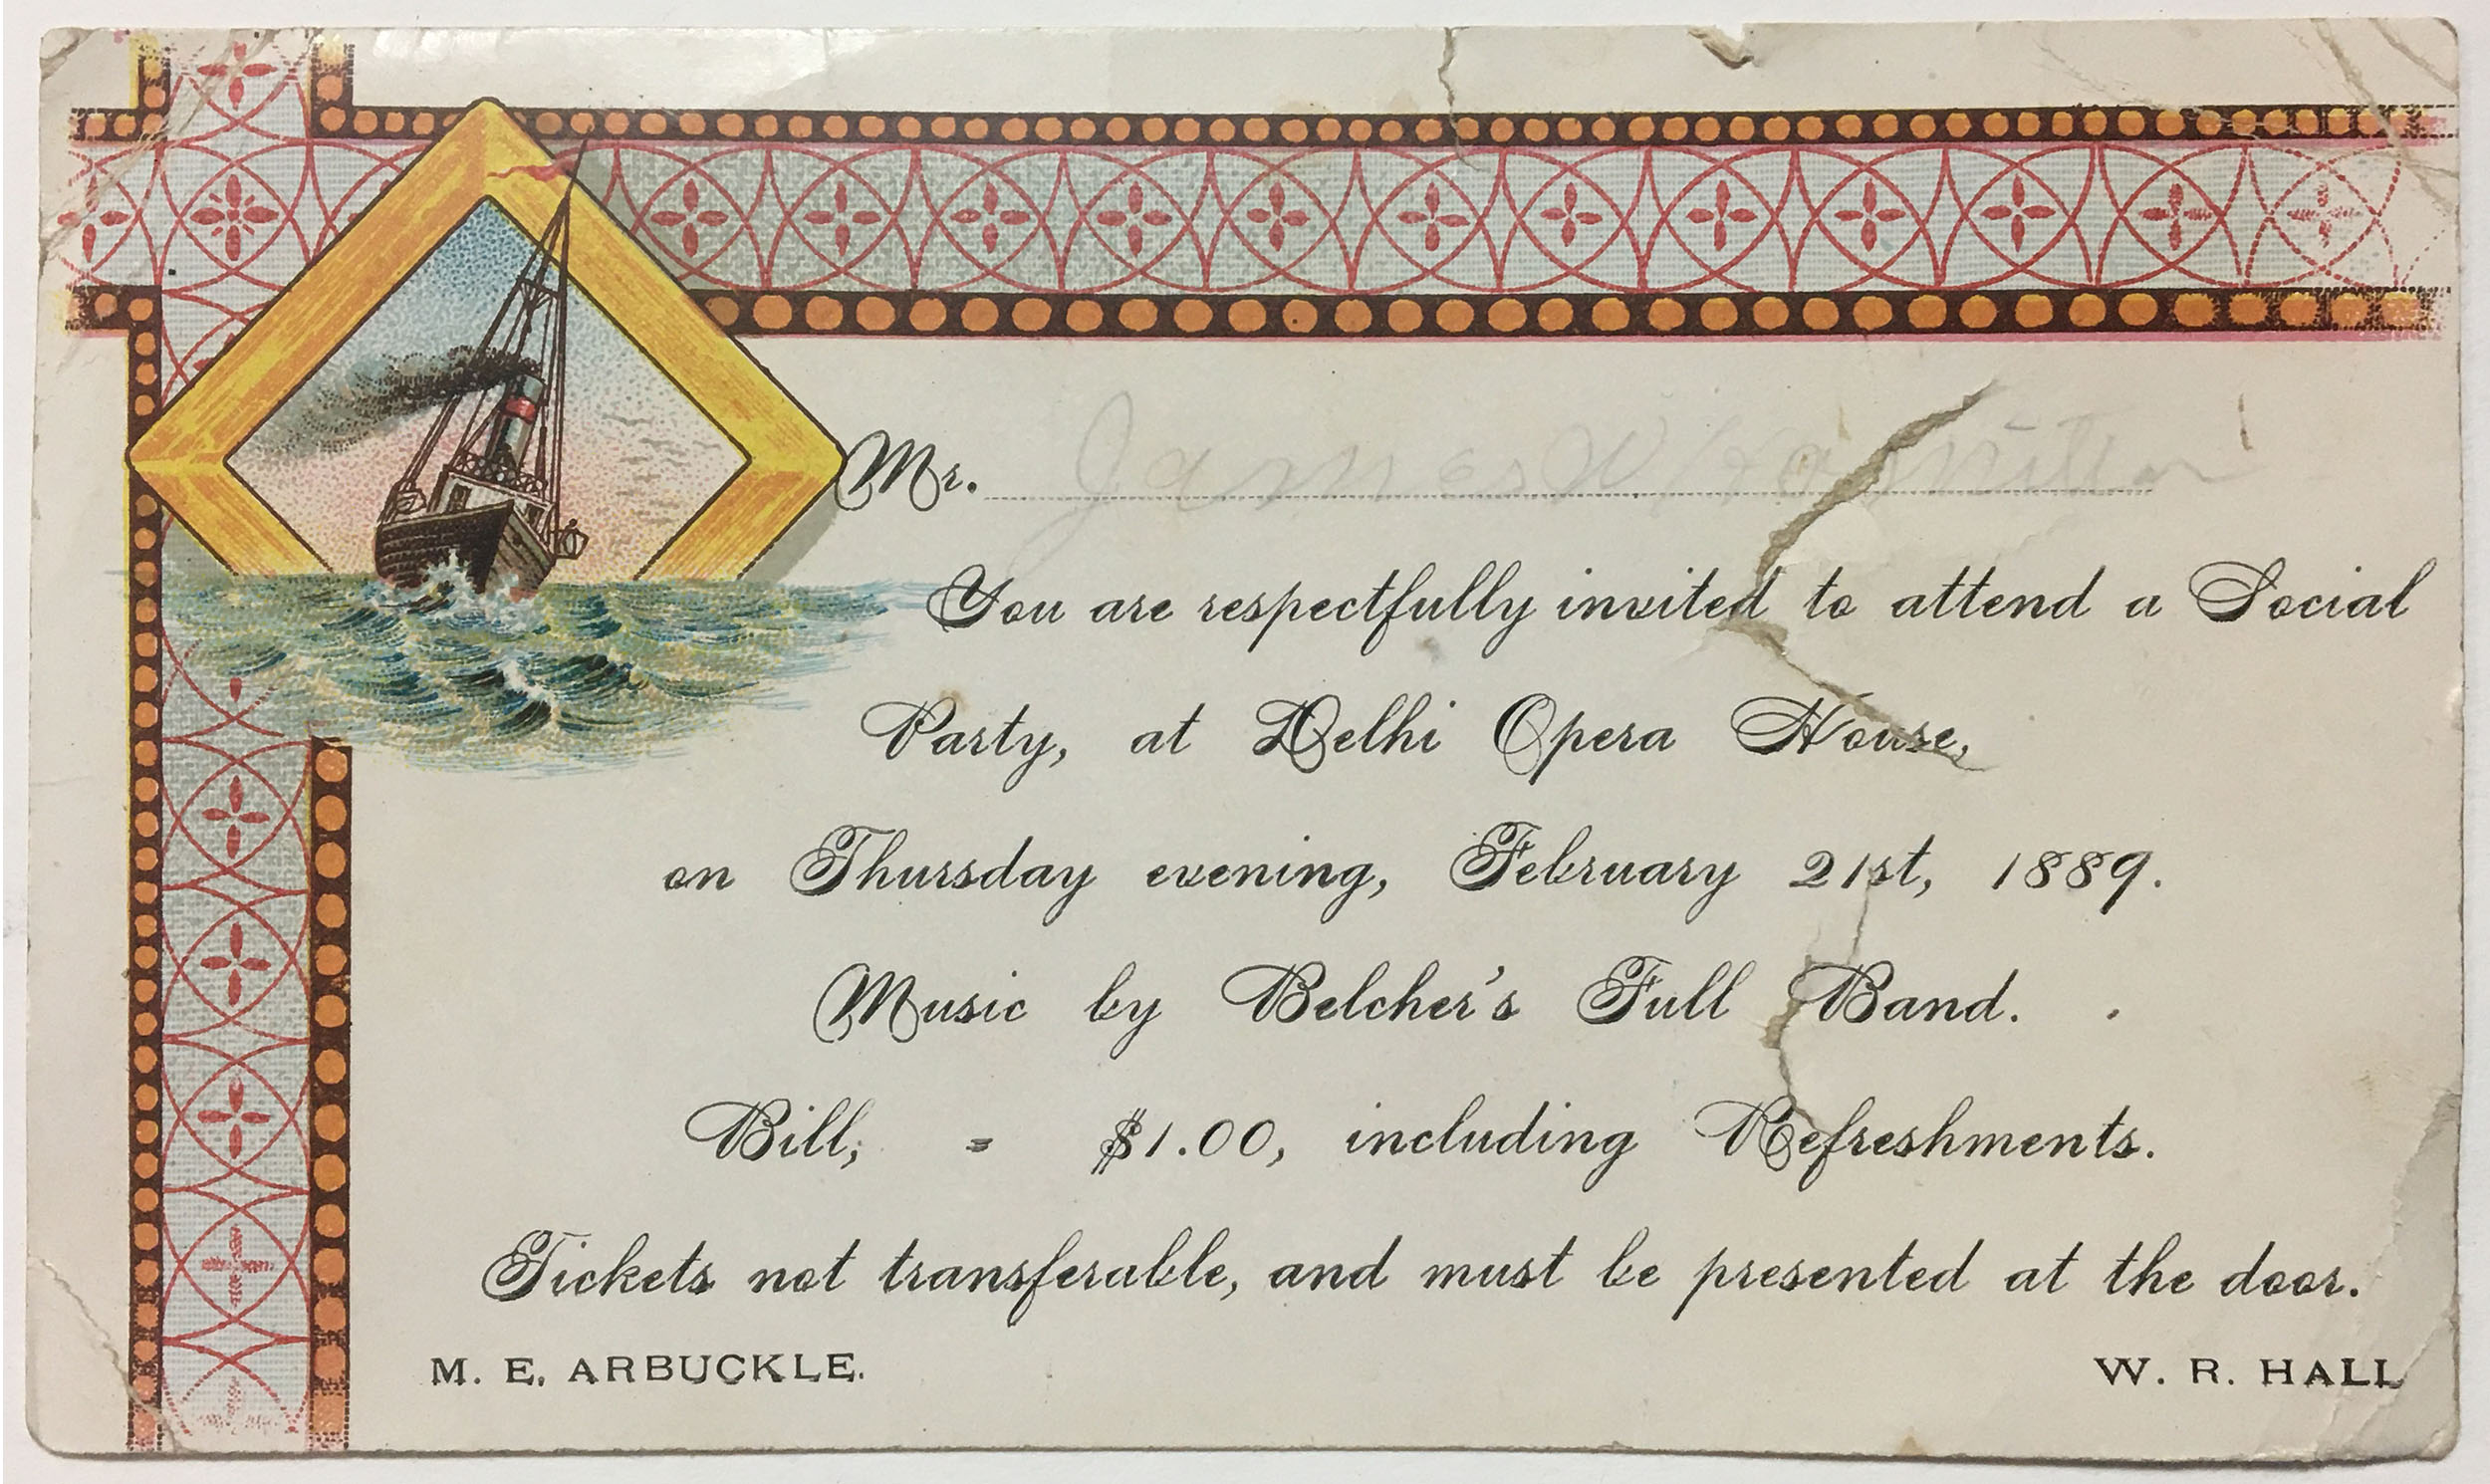 Mr. James W
You are respectfully invited to attend a Social
Party, at Delhi Opera House,
on Thursday evening, February 21st, 1889.
Music by Belcher's Full Band. .
Bill, = $1.00, including Refreshments.
Tickets not transferable, and must be presented at the door.
M. E. ARBUCKLE.
W. R. HALL